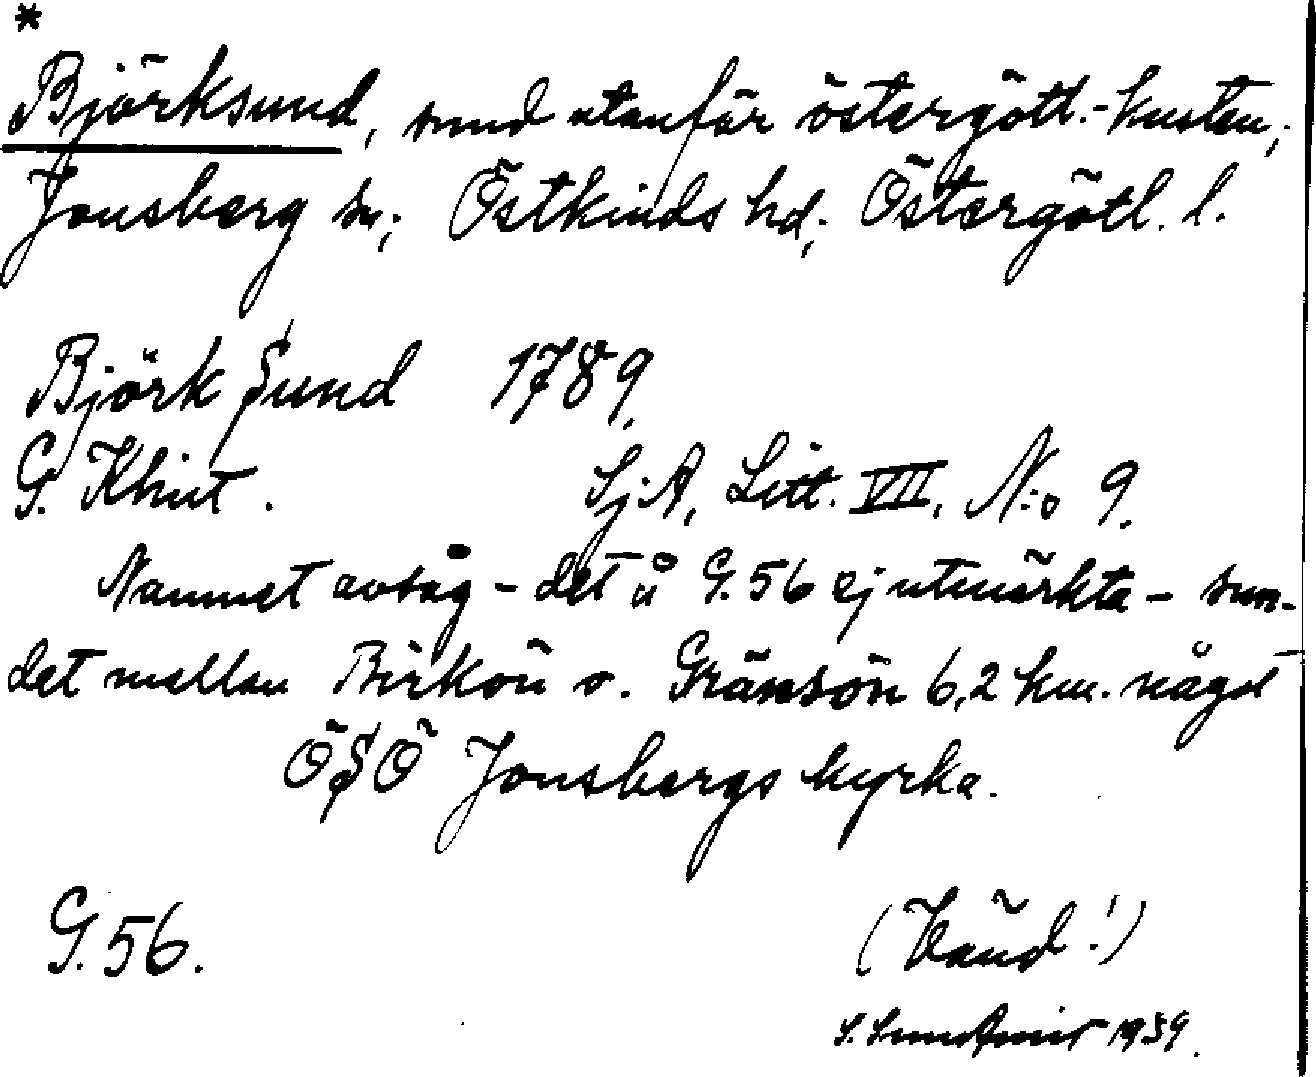 *
Björksund, sund utanför östergötl.-kusten,
Jonsberg sn; Östkinds hd; Östergötl. l.
Björk Sund 1789.
G. Klint. Sj.A, Litt. VII, N:o 9.
Namnet avsåg – det å G.56 ej utmärkta – sun-
det mellan Birkön o. Gränsön 6,2 km. något
ÖSÖ Jonsbergs kyrka.
G.56. (Vänd!)
1939.